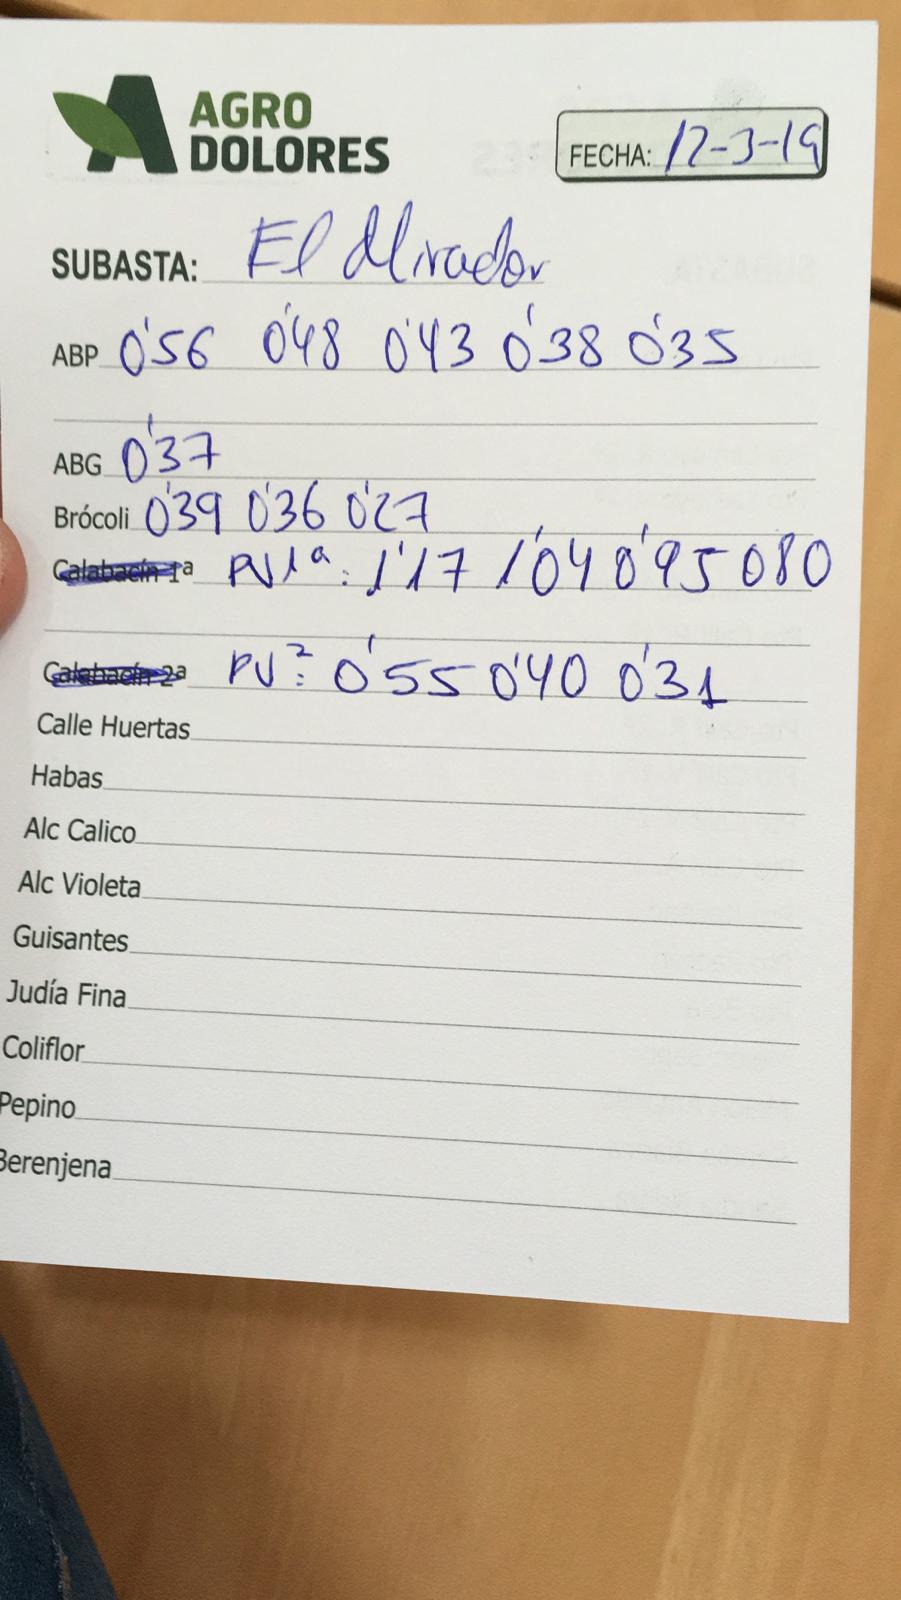 AGRO
DOLORES
FECHA: 12-3-19
SUBASTA: El Mirador
ABP 0'56 0'48 0'43 0'38 0'35
ABG 0'37
Brócoli 0'39 0'36 0'27
Calabacín 1ª PV 1ª: 1'17 1'04 0'95 080
Calabacín 2ª PV 2: 0'55 0'40 0'31
Calle Huertas
Habas
Alc Calico
Alc Violeta
Guisantes
Judía Fina
Coliflor
Pepino
Berenjena